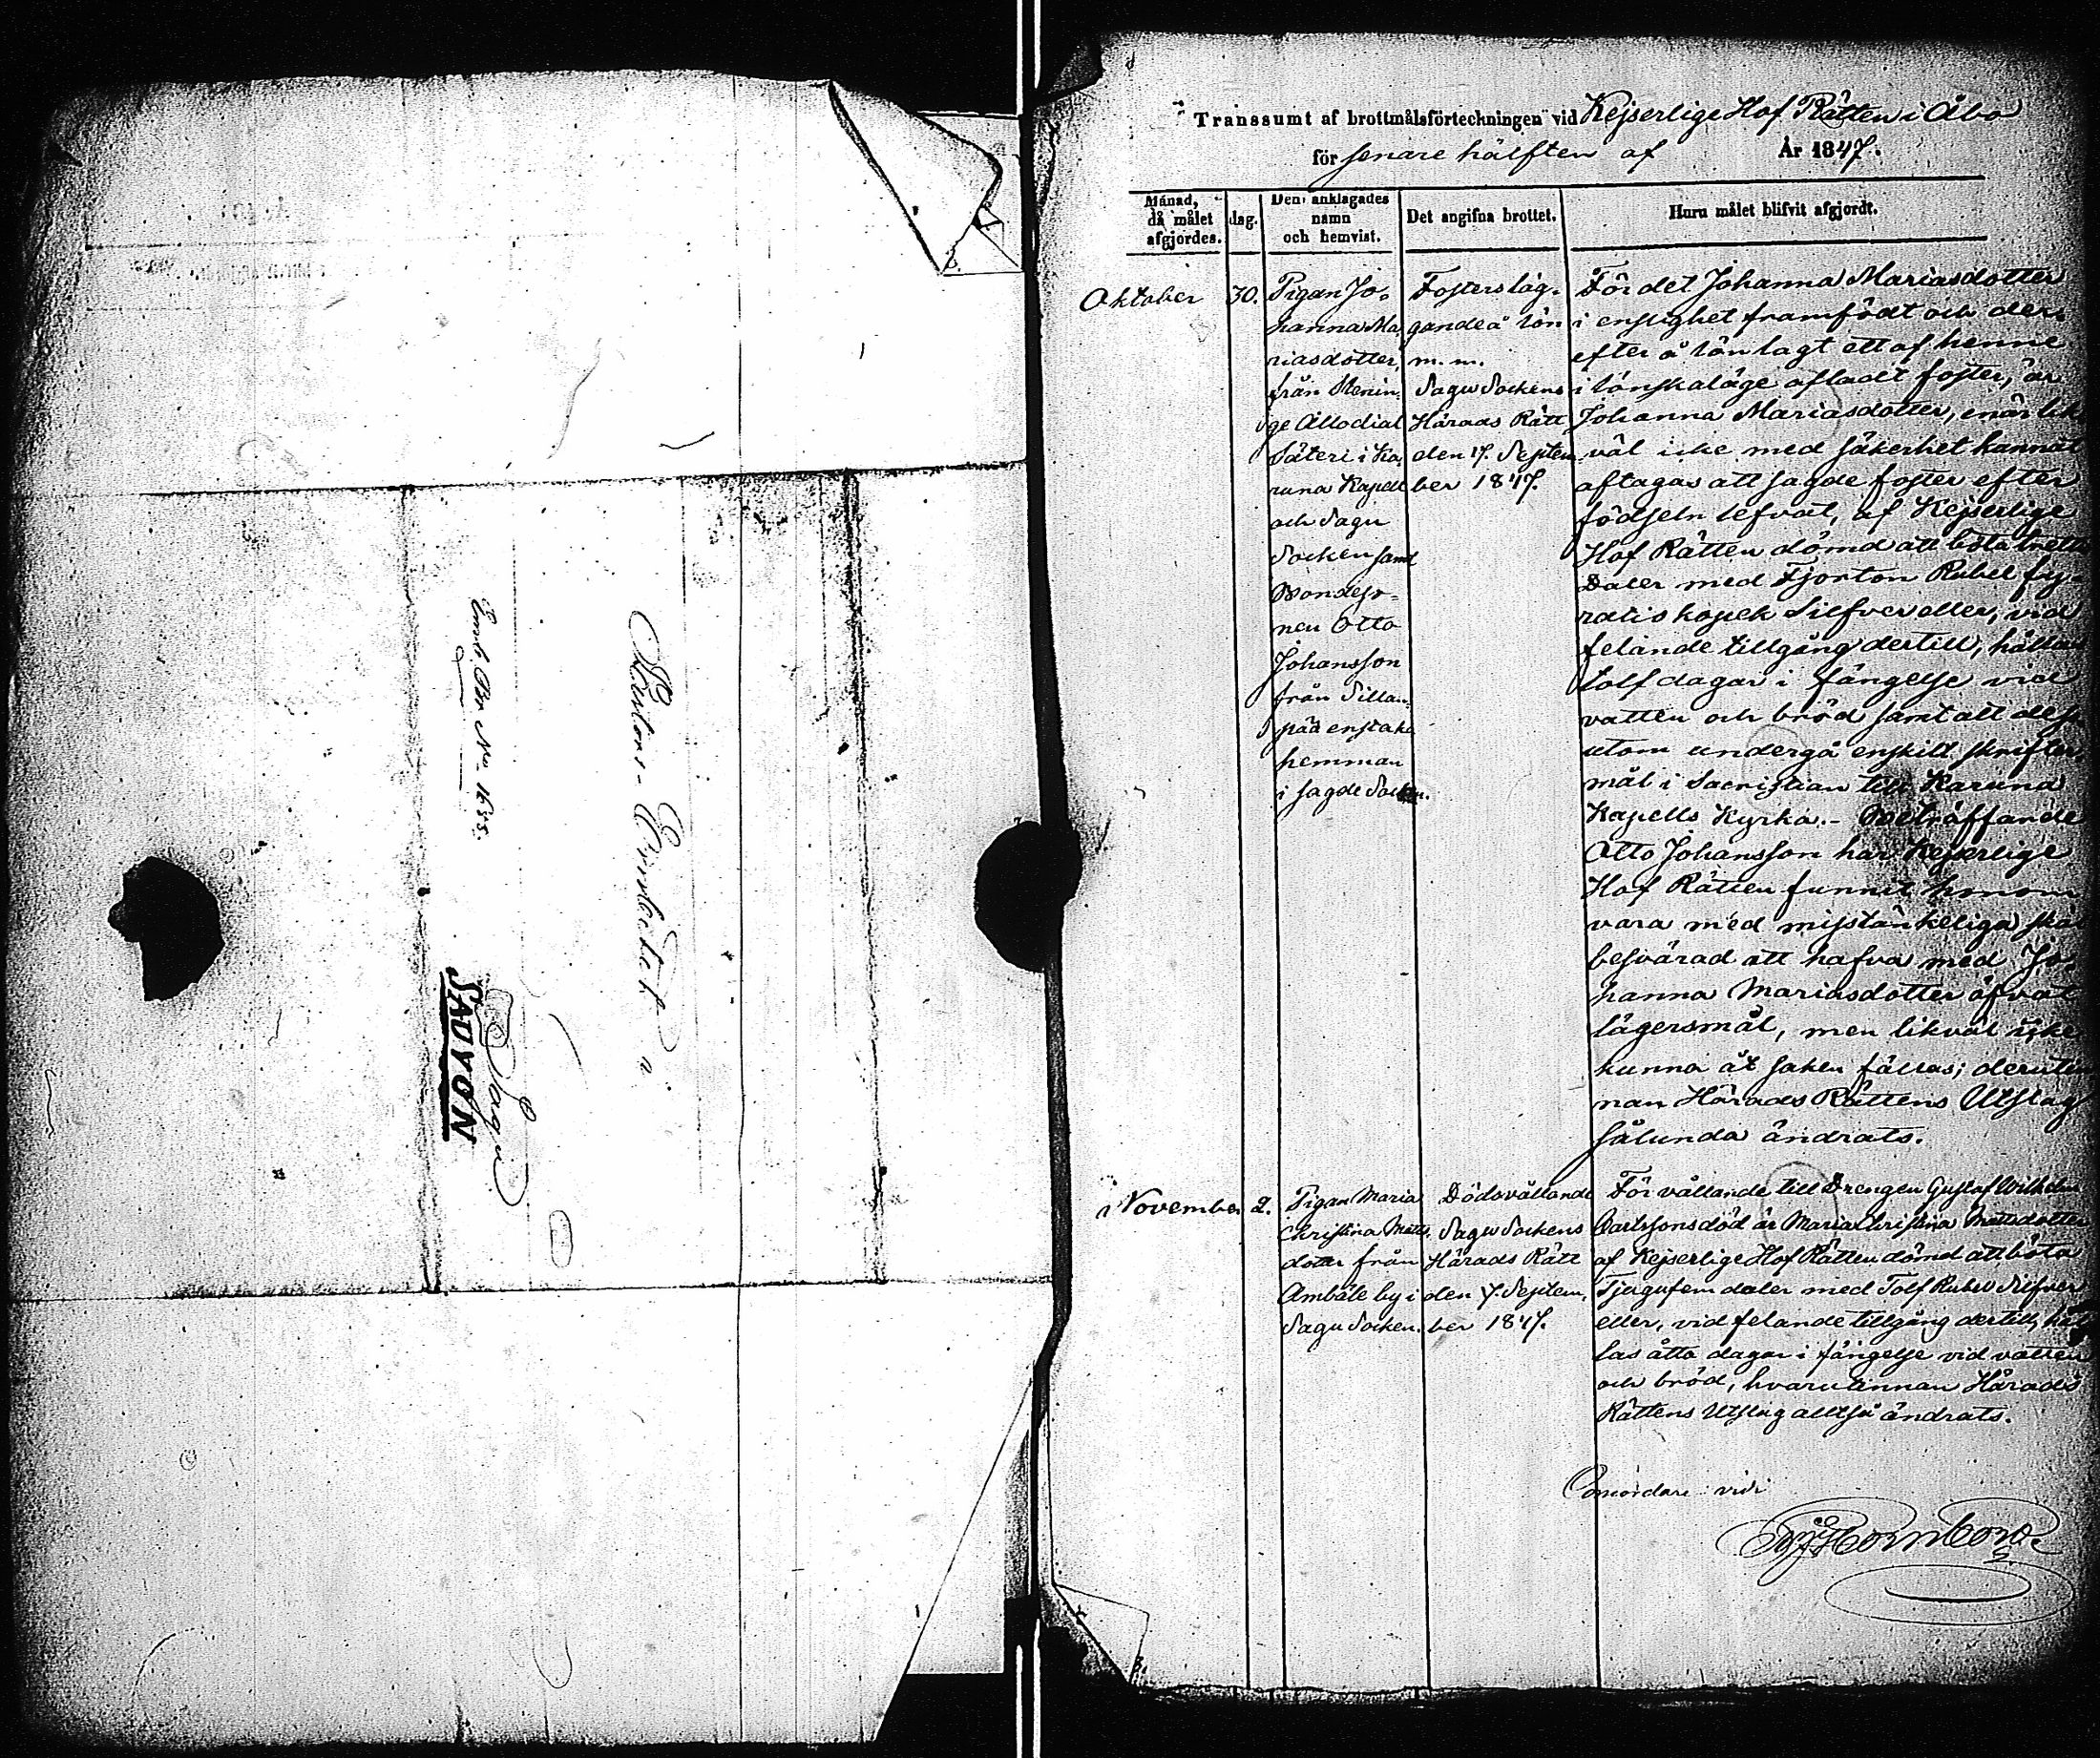 Pastors-Embetet i
Sagu
SADVON
Embt. Bref No 1635.
Transsumt af brottmålsförteckningen vid Kejserlige Hof Rätten i Åbo
för senare hälften af År 1847.
Månad, då målet afgjordes.
dag.
Den anklagades namn och hemvist.
Det angifna brottet.
Huru målet blifvit afgjordt.
Oktober
30.
Pigan Jo-
hanna Ma-
riasdotter,
från
ge Allodial
Säteri i Ka-
runa Kapell
och Sagu
Socken samt
Bondeso-
nen Otto
Johansson
från Sillan-
pää enstaka
hemman
i sagde Socken.
Fosters läg-
gande å lön
m. m.
Sagu Sockens
Härads Rätt
den 17. Septem-
ber 1847.
För det Johanna Mariasdotter
i enslighet framfödt och der-
efter å lön lagt ett af henne
i lönskaläge afladt foster, är
Johanna Mariasdotter, enär lik-
väl icke med säkerhet kunnat
aftagas att sagde foster efter
födseln lefvat, af Kejserlige
Hof Rätten dömd att böta
Daler med Fjorton Rubel fy-
ratio kopek Silfver eller, vid
felande tillgång dertill, hållas
tolf dagar i fängelse vid
vatten och bröd samt att dess-
utom undergå enskilt skrifter-
mål i Sacristian till Karuna
Kapells Kyrka. - Beträffande
Otto Johansson har Kejserlige
Hof Rätten funnit honom
vara med misstänkeliga skäl
besvärad att hafva med Jo-
hanna Mariasdotter öfvat
lägersmål, men likväl icke
kunna åt saken fällas; derutin-
nan Härads Rättens Utslag
sålunda ändrats.
November
2.
Pigan Maria
Christina Matts-
dotter från
Ambåle by i
Sagu Socken.
Dödsvållande
Sagu Sockens
Härads Rätt
den 7. Septem-
ber 1847.
För vållande till Drengen Gustaf Wilhelm
Carlssons död är Maria Christina Mattsdotter
af Kejserlige Hof Rätten dömd att böta
Tjugufem daler med Tolf Rubel Silfver
eller, vid felande tillgång dertill, hål-
las åtta dagar i fängelse vid vatten
och bröd, hvarutinnan Härads
Rättens Utslag alltså ändrats.
Concordare vidi